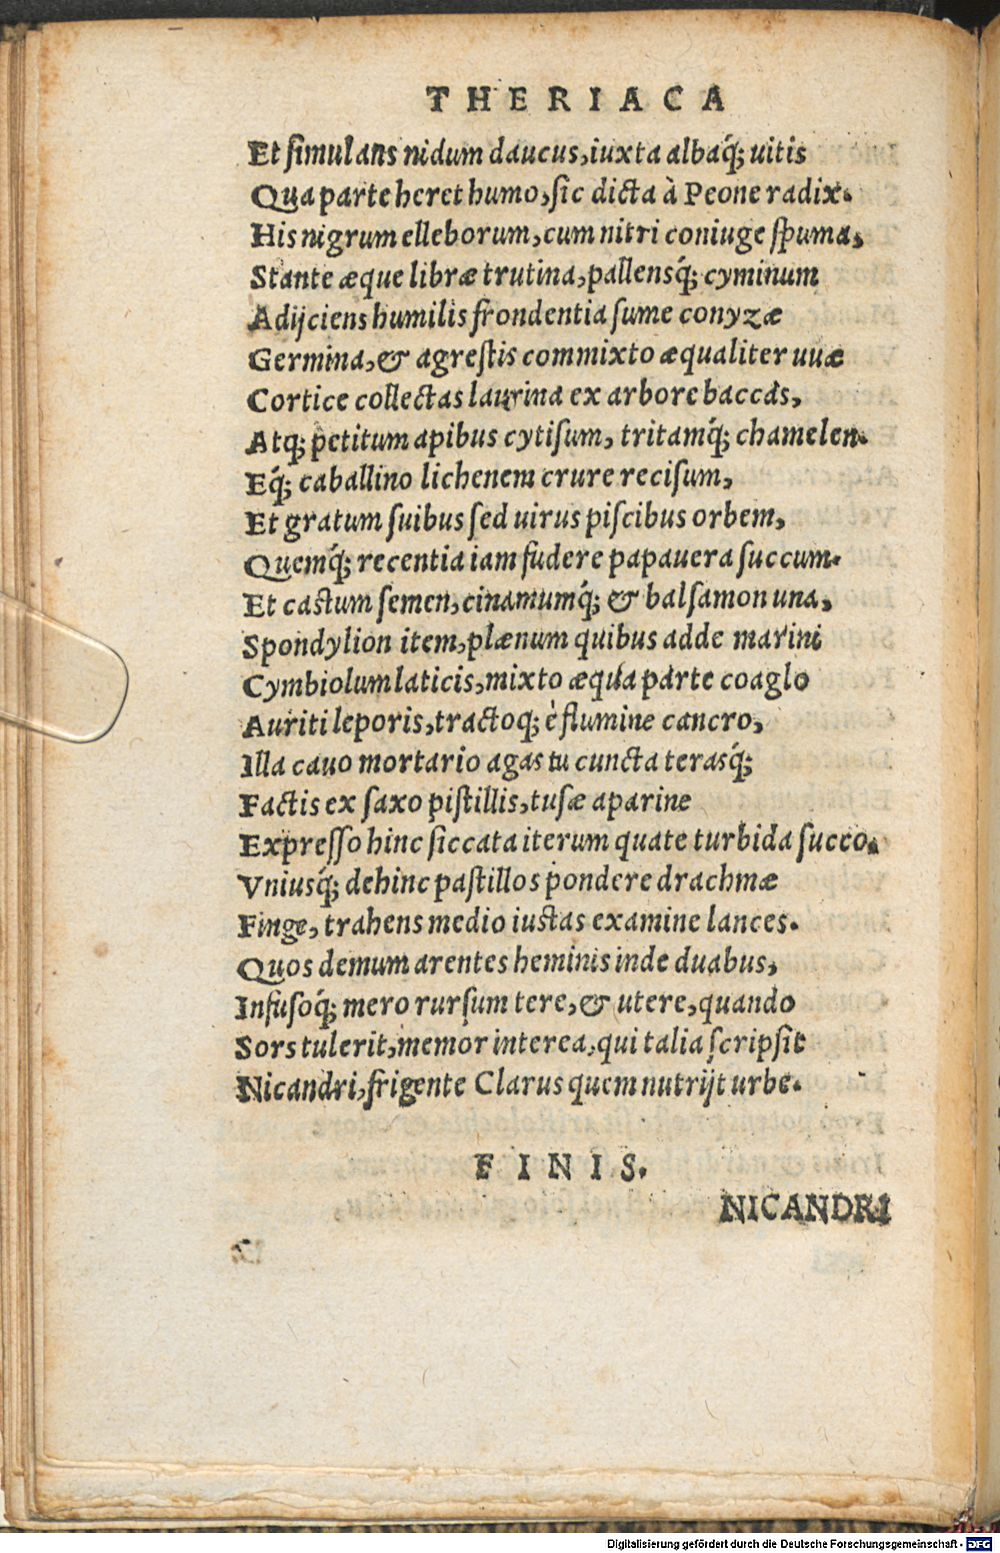 THERIACA
Et simulans nidum daucus, iuxta albaq́; uitis
Qua parte heret humo, sic dicta à Peone radix.
His nigrum elleborum, cum nitri coniuge spuma,
Stante æque libræ trutina, pallensq́; cyminum
Adijciens humilis frondentia sume conyzæ
Germina, & agrestis commixto æqualiter uuæ
Cortice collectas laurina ex arbore baccas,
Atq; petitum apibus cytisum, tritamq́; chamelen.
Eq́; caballino lichenem crure recisum,
Et gratum suibus sed uirus piscibus orbem,
Quemq́; recentia iam fudere papauera succum.
Et castum semen, cinamumq́; & balsamon una,
Spondylion item, plænum quibus adde marini
Cymbiolum laticis, mixto æqua parte coaglo
Auriti leporis, tractoq; è flumine cancro,
Illa cauo mortario agas tu cuncta terasq́;
Factis ex saxo pistillis, tusæ aparine
Expresso hinc siccata iterum quate turbida succo.
Vniusq́; dehinc pastillos pondere drachmæ
Finge, trahens medio iustas examine lances.
Quos demum arentes heminis inde duabus,
Infusoq́; mero rursum tere, & utere, quando
Sors tulerit, memor interea, qui talia scripsit
Nicandri, frigente Clarus quem nutrijt urbe.
FINIS.
NICANDRI
Digitalisierung gefördert durch die Deutsche Forschungsgemeinschaft - DFG